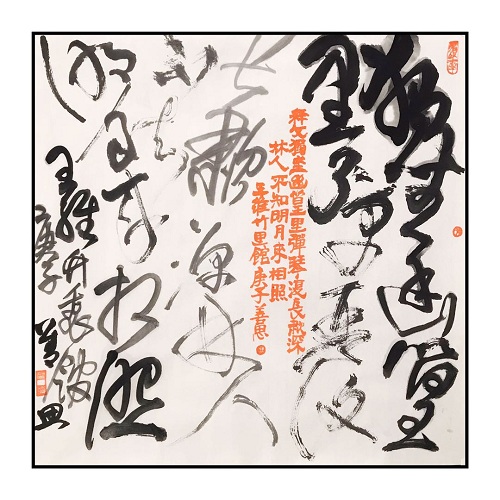 獨坐幽篁
里彈琴復
释文獨坐幽篁里彈琴復長啸深
林人不知明月來相照
王維竹里館庚子善愚
长嘯深林人
不知
明月来相照
王維竹里館
庚子善愚